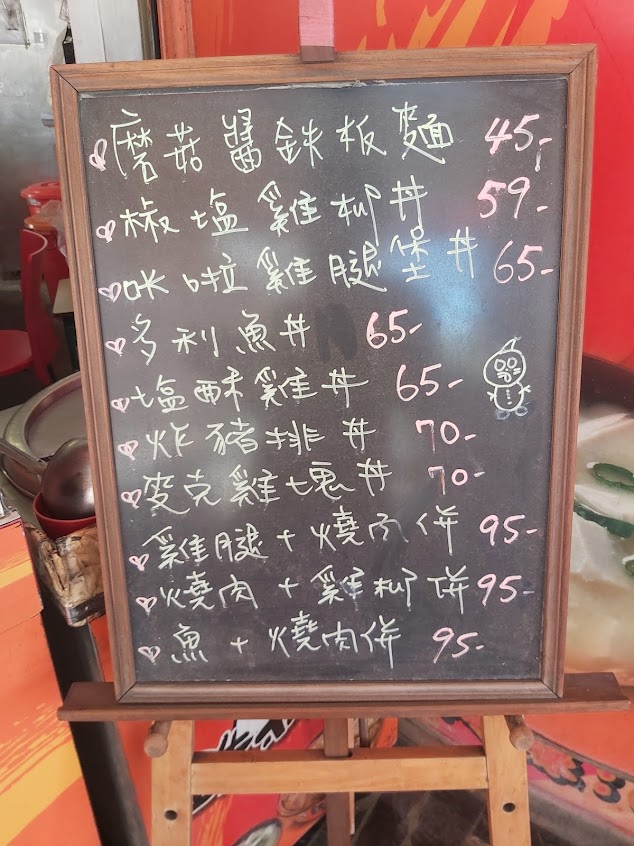 蘑菇醬鉄板麵 45-
椒塩雞柳丼 59-
咔啦雞腿堡丼 65-
多利魚丼 65-
塩酥雞丼 65-
炸豬排丼 70-
麥克雞塊丼 70-
雞腿+燒肉併 95-
燒肉+雞柳併 95-
魚+燒肉併 95-